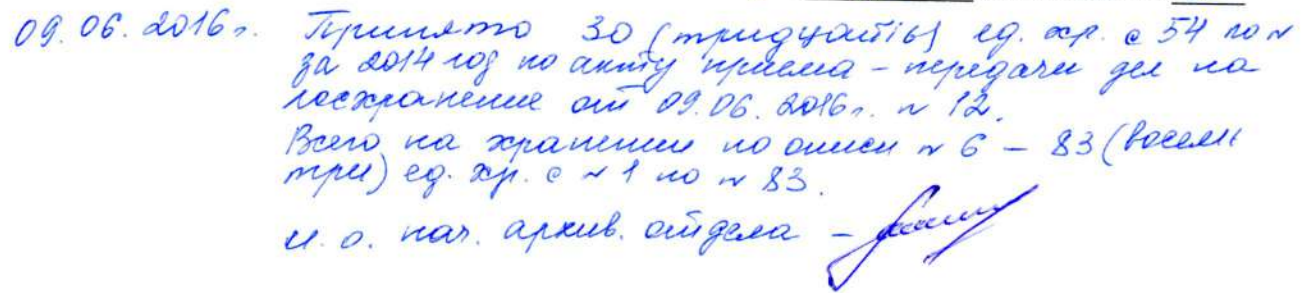 09.06.2016 г. Принято 30 (тридцать) ед. хр. с 54 по №
за 2014 год по акту приема-передачи дел на
госхранение от 09.06.2016 г. № 12.
Всего на хранении по описи № 6 - 83 (восемь
три) ед. хр. с № 1 по № 83.
и. о. нач. архив. отдела -